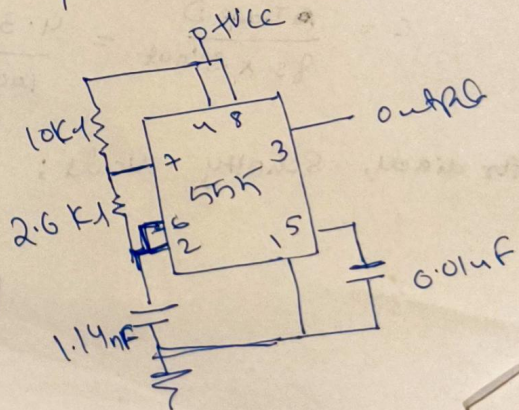 +VCC
10K
4 8
output
7
3
555
2.6 K
6
2
1
5
0.01uF
1.14nF